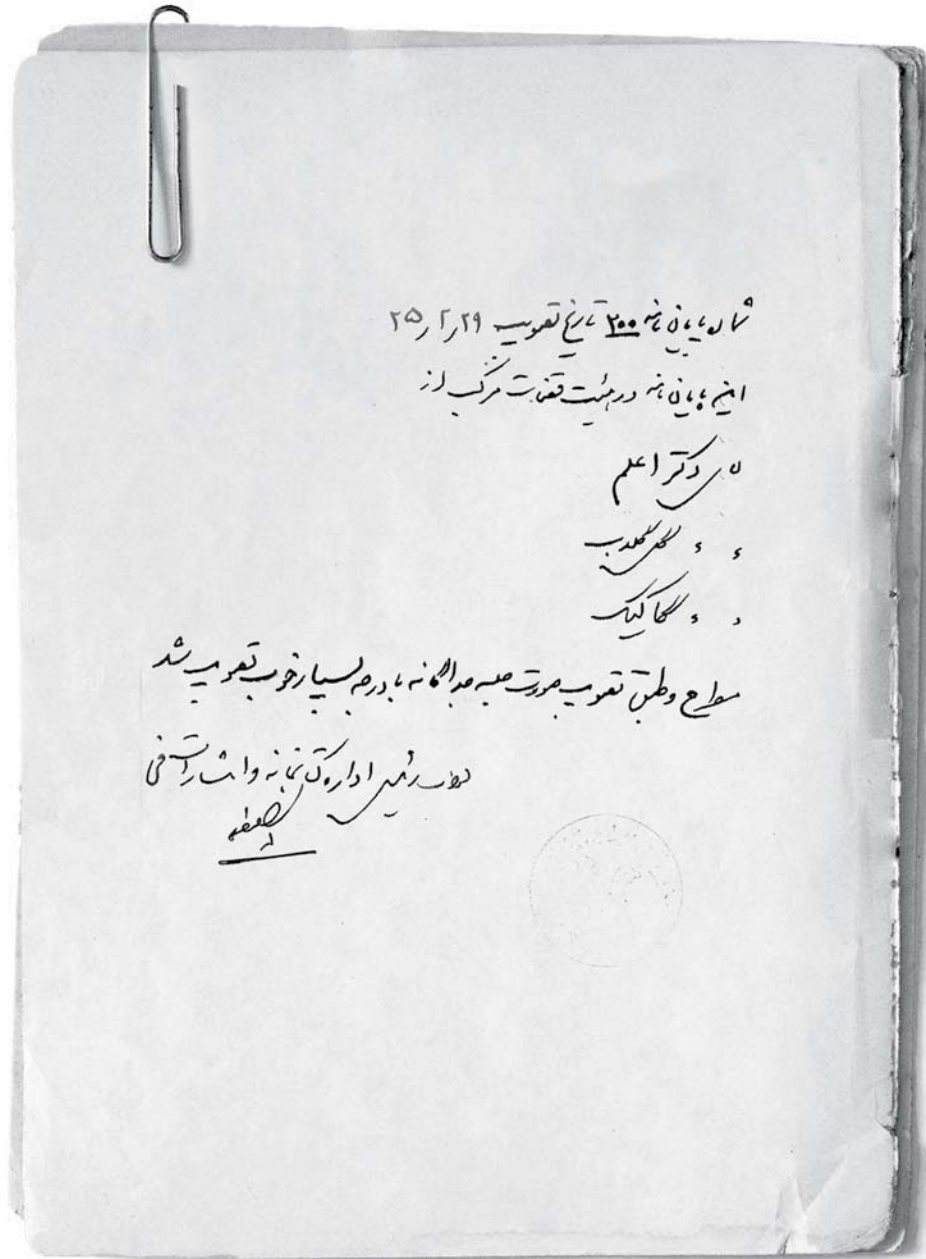 شماره پایان نامه ۲۰۰ تاریخ تصویب ۲۵٫۲٫۲۹
این پایان نامه در هیئت قضات مرکب از
آقای دکتر اعلم
ء ء گل گلاب
ء ء گاگیک
مطرح و طبق تصویب صورت جلسه جداگانه با درجه بسیار خوب تصویب شد
رئیس اداره کتابخانه و انتشارات فنی